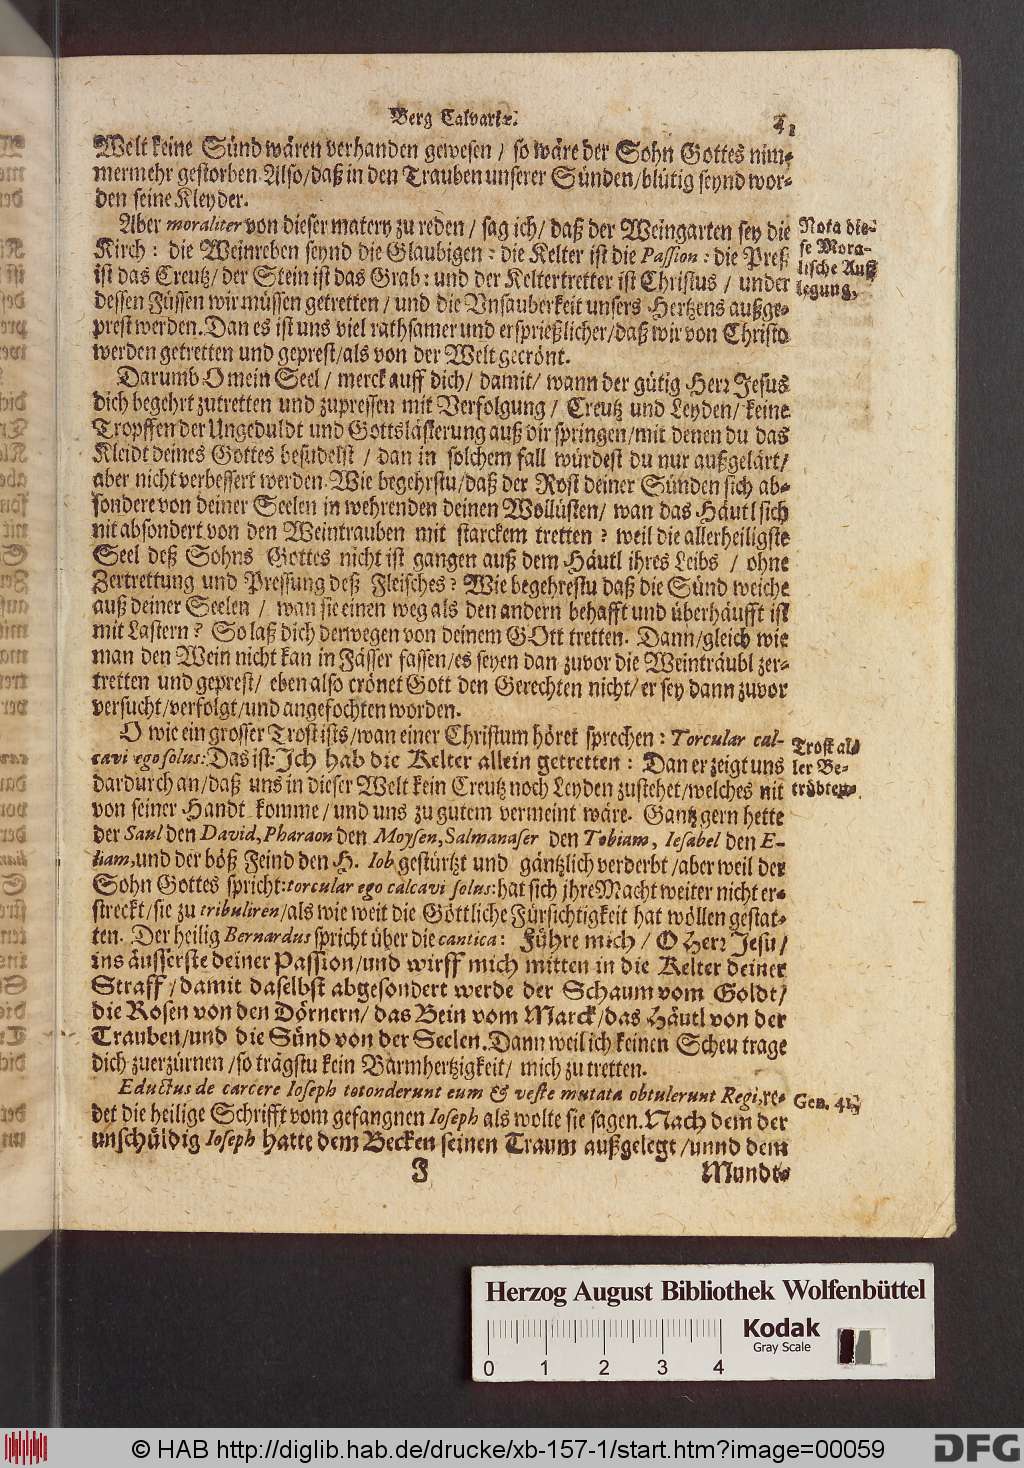 Berg Calvariæ.
Welt keine Sünd wären verhanden gewesen / so wäre der Sohn Gottes nim-
mermehr gestorben. Also / daß in den Trauben unserer Sünden / blütig seynd wor-
den seine Kleyder.
Aber moraliter von dieser matery zu reden / sag ich / daß der Weingarten sey die
Kirch: die Weinreben seynd die Glaubigen: die Kelter ist die Passion: die Preß
ist das Creutz / der Stein ist das Grab: und der Keltertretter ist Christus / under
dessen Füssen wir müssen getretten / und die Vnsauberkeit unsers Hertzens außge-
prest werden. Dan es ist uns viel rathsamer und ersprießlicher / daß wir von Christo
werden getretten und geprest / als von der Welt gecrönt.
Nota die-
se Mora-
lische Auß
legung.
Darumb O mein Seel / merck auff dich / damit / wann der gütig Herr Jesus
dich begehrt zutretten und zupressen mit Verfolgung / Creutz und Leyden / keine
Tropffen der Ungeduldt und Gottslästerung auß dir springen / mit denen du das
Kleidt deines Gottes besudelst / dan in solchem fall würdest du nur außgelärt /
aber nicht verbessert werden. Wie begehrstu / daß der Rost deiner Sünden sich ab-
sondere von deiner Seelen in wehrenden deinen Wollüsten / wan das Häutl sich
nit absondert von den Weintrauben mit starckem tretten? weil die allerheiligste
Seel deß Sohns Gottes nicht ist gangen auß dem Häutl ihres Leibs / ohne
Zertrettung und Pressung deß Fleisches? Wie begehrestu daß die Sünd weiche
auß deiner Seelen / wan sie einen weg als den andern behafft und überhäufft ist
mit Lastern? So laß dich derwegen von deinem GOtt tretten. Dann / gleich wie
man den Wein nicht kan in Fässer fassen / es seyen dan zuvor die Weinträubl zer-
tretten und geprest / eben also crönet Gott den Gerechten nicht / er sey dann zuvor
versucht / verfolgt / und angefochten worden.
O wie ein grosser Trost ists / wan einer Christum höret sprechen: Torcular cal-
cavi ego solus: Das ist: Ich hab die Kelter allein getretten: Dan er zeigt uns
dardurch an / daß uns in dieser Welt kein Creutz noch Leyden zustehet / welches nit
von seiner Handt komme / und uns zu gutem vermeint wäre. Gantz gern hette
der Saul den David, Pharaon den Moysen, Salmanaser den Tobiam, Iesabel den E-
liam, und der böß Feind den H. Iob gestürtzt und gäntzlich verderbt / aber weil der
Sohn Gottes spricht: torcular ego calcavi solus: hat sich jhre Macht weiter nicht er-
streckt / sie zu tribuliren / als wie weit die Göttliche Fürsichtigkeit hat wöllen gestat-
ten. Der heilig Bernardus spricht über die cantica: Führe mich / O Herr Jesu /
ins äusserste deiner Passion / und wirff mich mitten in die Kelter deiner
Straff / damit daselbst abgesondert werde der Schaum vom Goldt /
die Rosen von den Dörnern / das Bein vom Marck / das Häutl von der
Trauben / und die Sünd von der Seelen. Dann weil ich keinen Scheu trage
dich zuerzürnen / so trägstu kein Barmhertzigkeit / mich zu tretten.
Trost al-
ler Be-
trübten.
Eductus de carcere Ioseph totonderunt eum & veste mutata obtulerunt Regi, re-
det die heilige Schrifft vom gefangnen Ioseph als wolte sie sagen. Nach dem der
unschüldig Ioseph hatte dem Becken seinen Traum außgelegt / unnd dem
Gen. 41.
J
Mundt-
Herzog August Bibliothek Wolfenbüttel
Kodak
Gray Scale
0 1 2 3 4
© HAB http://diglib.hab.de/drucke/xb-157-1/start.htm?image=00059
DFG